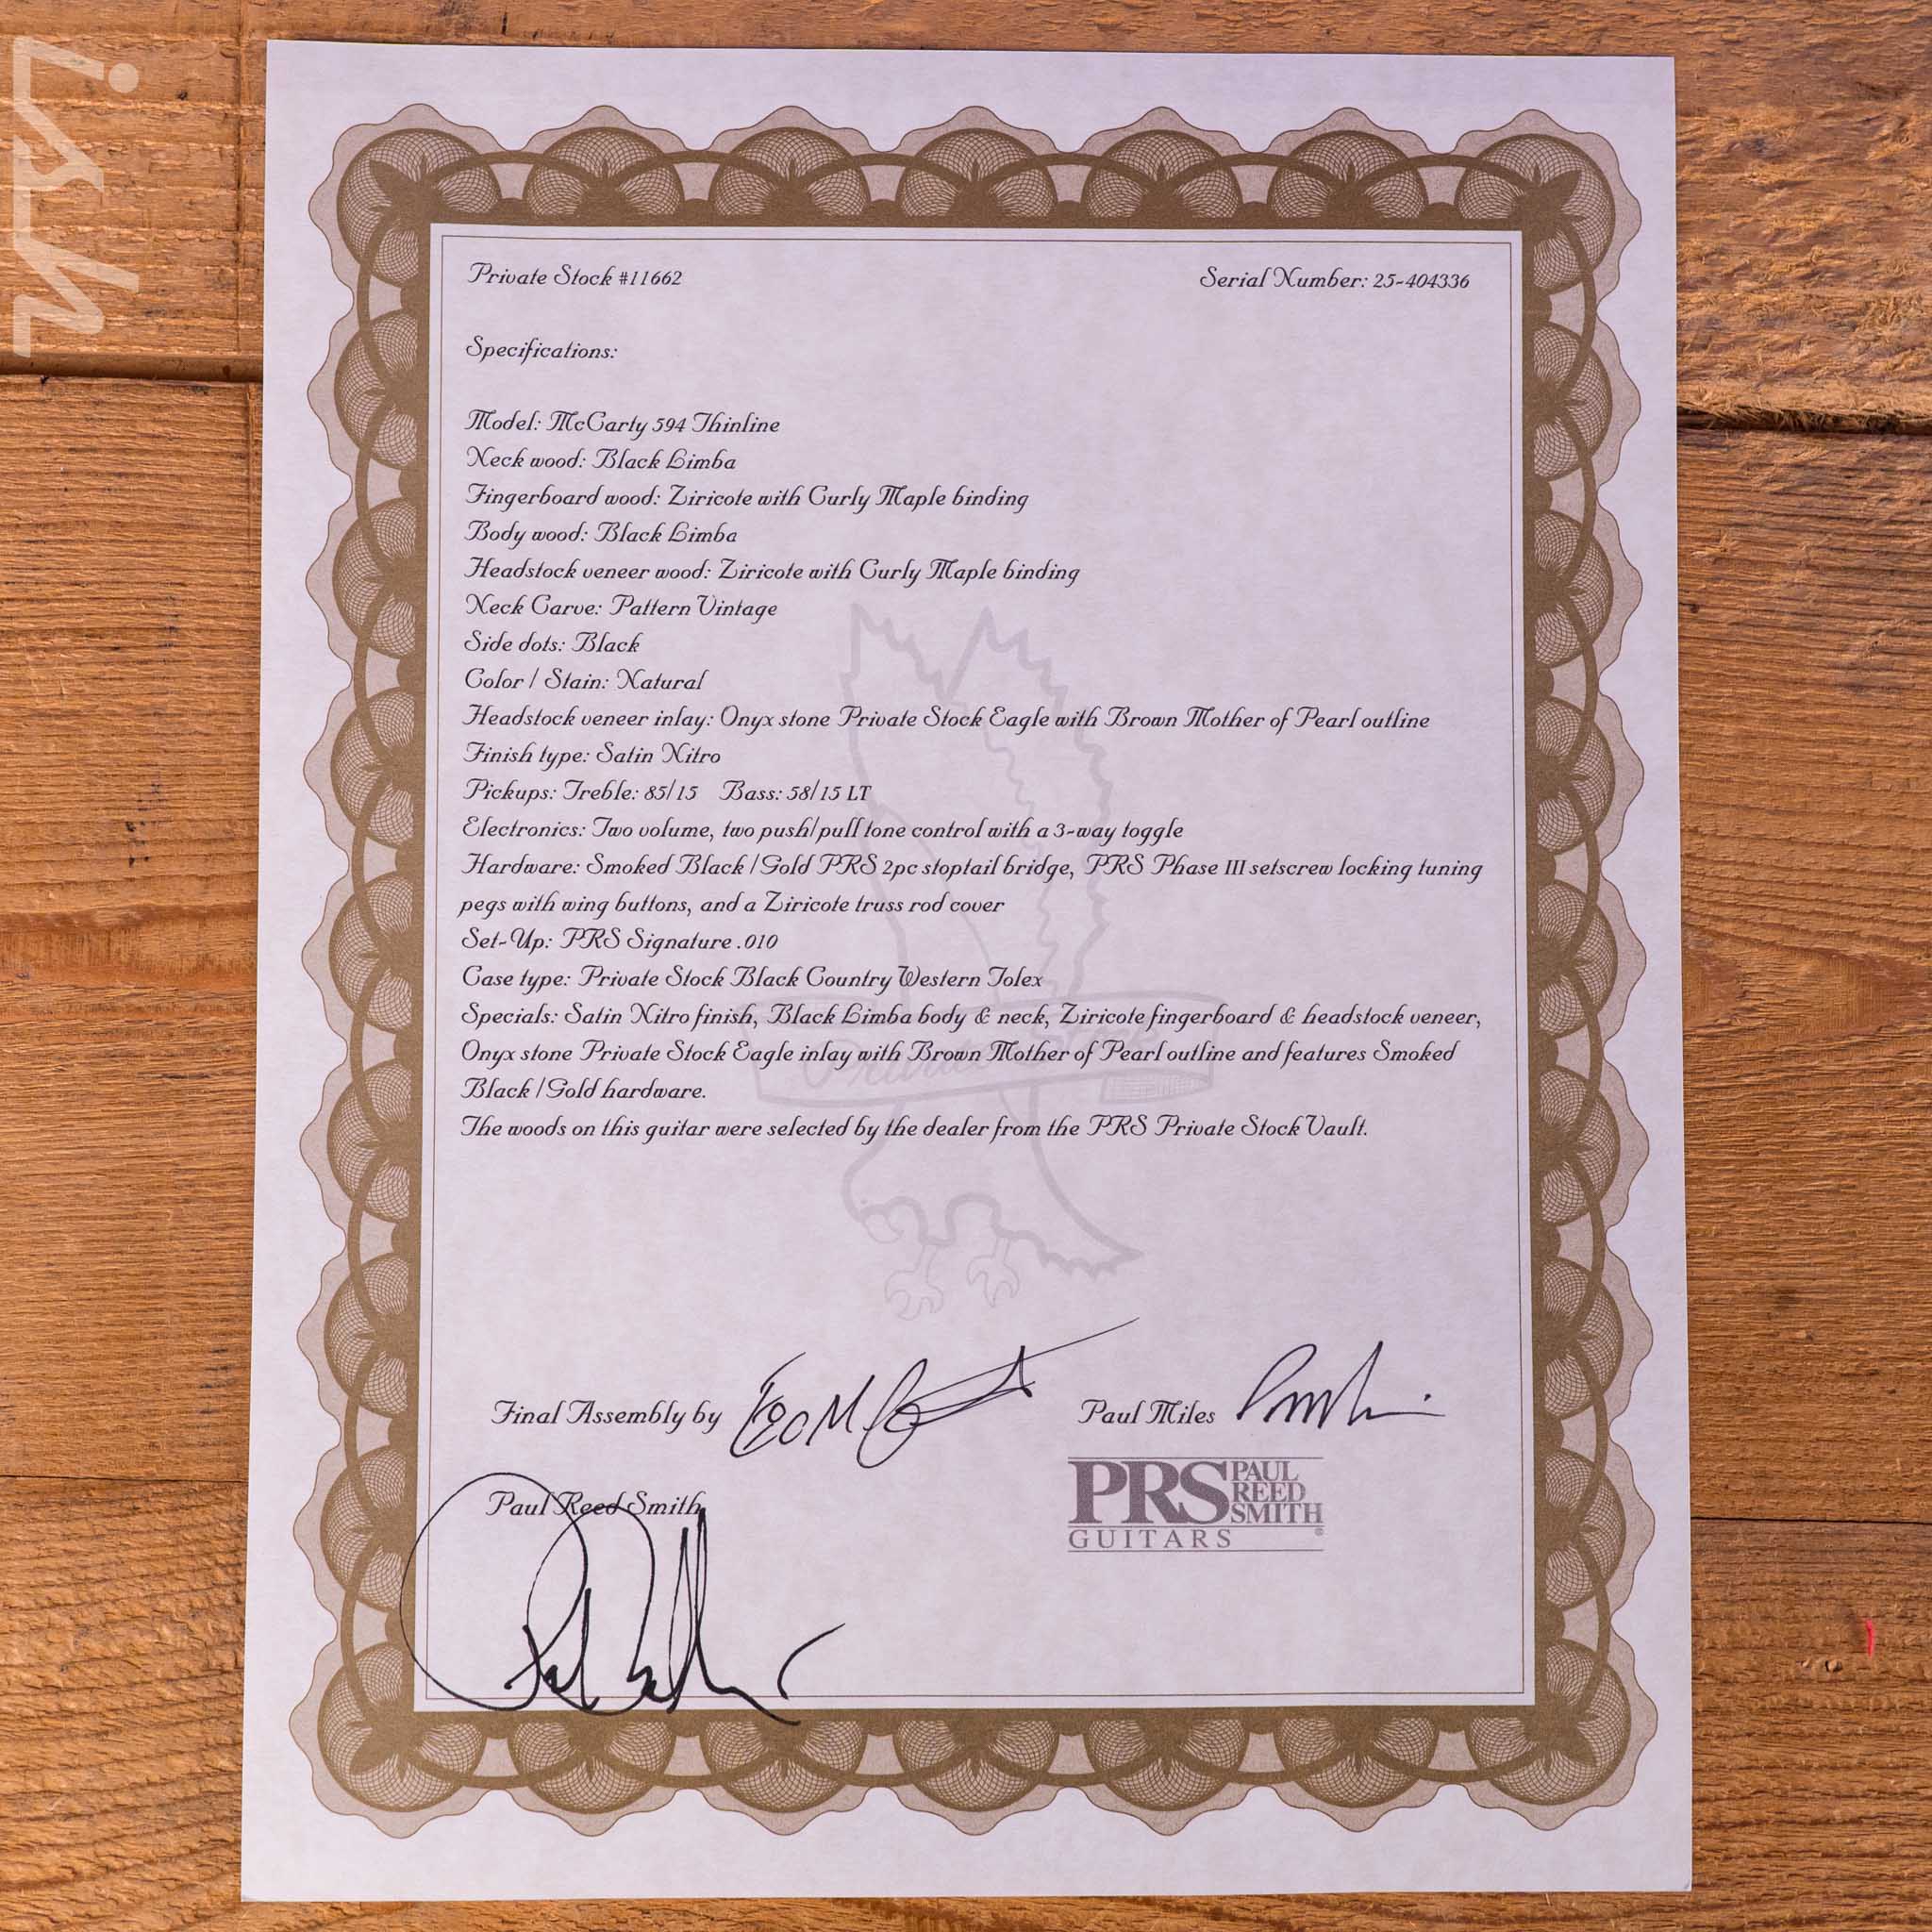 ish
Private Stock #11662
Serial Number: 25-404336
Specifications:
Model: McCarty 594 Thinline
Neck wood: Black Limba
Fingerboard wood: Ziricote with Curly Maple binding
Body wood: Black Limba
Headstock veneer wood: Ziricote with Curly Maple binding
Neck Carve: Pattern Vintage
Side dots: Black
Color / Stain: Natural
Headstock veneer inlay: Onyx stone Private Stock Eagle with Brown Mother of Pearl outline
Finish type: Satin Nitro
Pickups: Treble: 85/15 Bass: 58/15 LT
Electronics: Two volume, two push/pull tone control with a 3-way toggle
Hardware: Smoked Black / Gold PRS 2pc stoptail bridge, PRS Phase III setscrew locking tuning
pegs with wing buttons, and a Ziricote truss rod cover
Set-Up: PRS Signature .010
Case type: Private Stock Black Country Western Tolex
Specials: Satin Nitro finish, Black Limba body & neck, Ziricote fingerboard & headstock veneer,
Onyx stone Private Stock Eagle inlay with Brown Mother of Pearl outline and features Smoked
Black / Gold hardware.
The woods on this guitar were selected by the dealer from the PRS Private Stock Vault.
Final Assembly by
Paul Miles
Paul Reed Smith
PRS PAUL
REED
SMITH
GUITARS ®